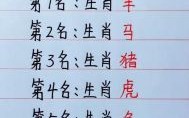 第1名:生肖羊
第2名:生肖马
第3名:生肖猪
第4名:生肖虎